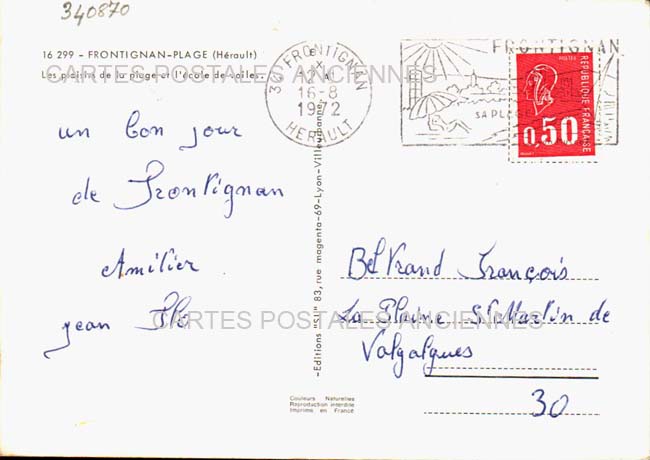 340870
16 299 - FRONTIGNAN-PLAGE (Hérault)
Les plaisirs de la plage et l'école de voiles.
CARTES POSTALES ANCIENNES
34 FRONTIGNAN
16-8
1972
HERAULT
FRONTIGNAN
SA PLAGE
POSTES
REPUBLIQUE FRANÇAISE
0,50
un bon jour
de Frontignan
Amitier
jean
-Editions "SL" 83, rue magenta-69-Lyon-Villeurbanne-
Beltrand François
La Plaine St Martin de
Valgalgues
30
CARTES POSTALES ANCIENNES
Couleurs Naturelles
Reproduction interdite
Imprimé en France